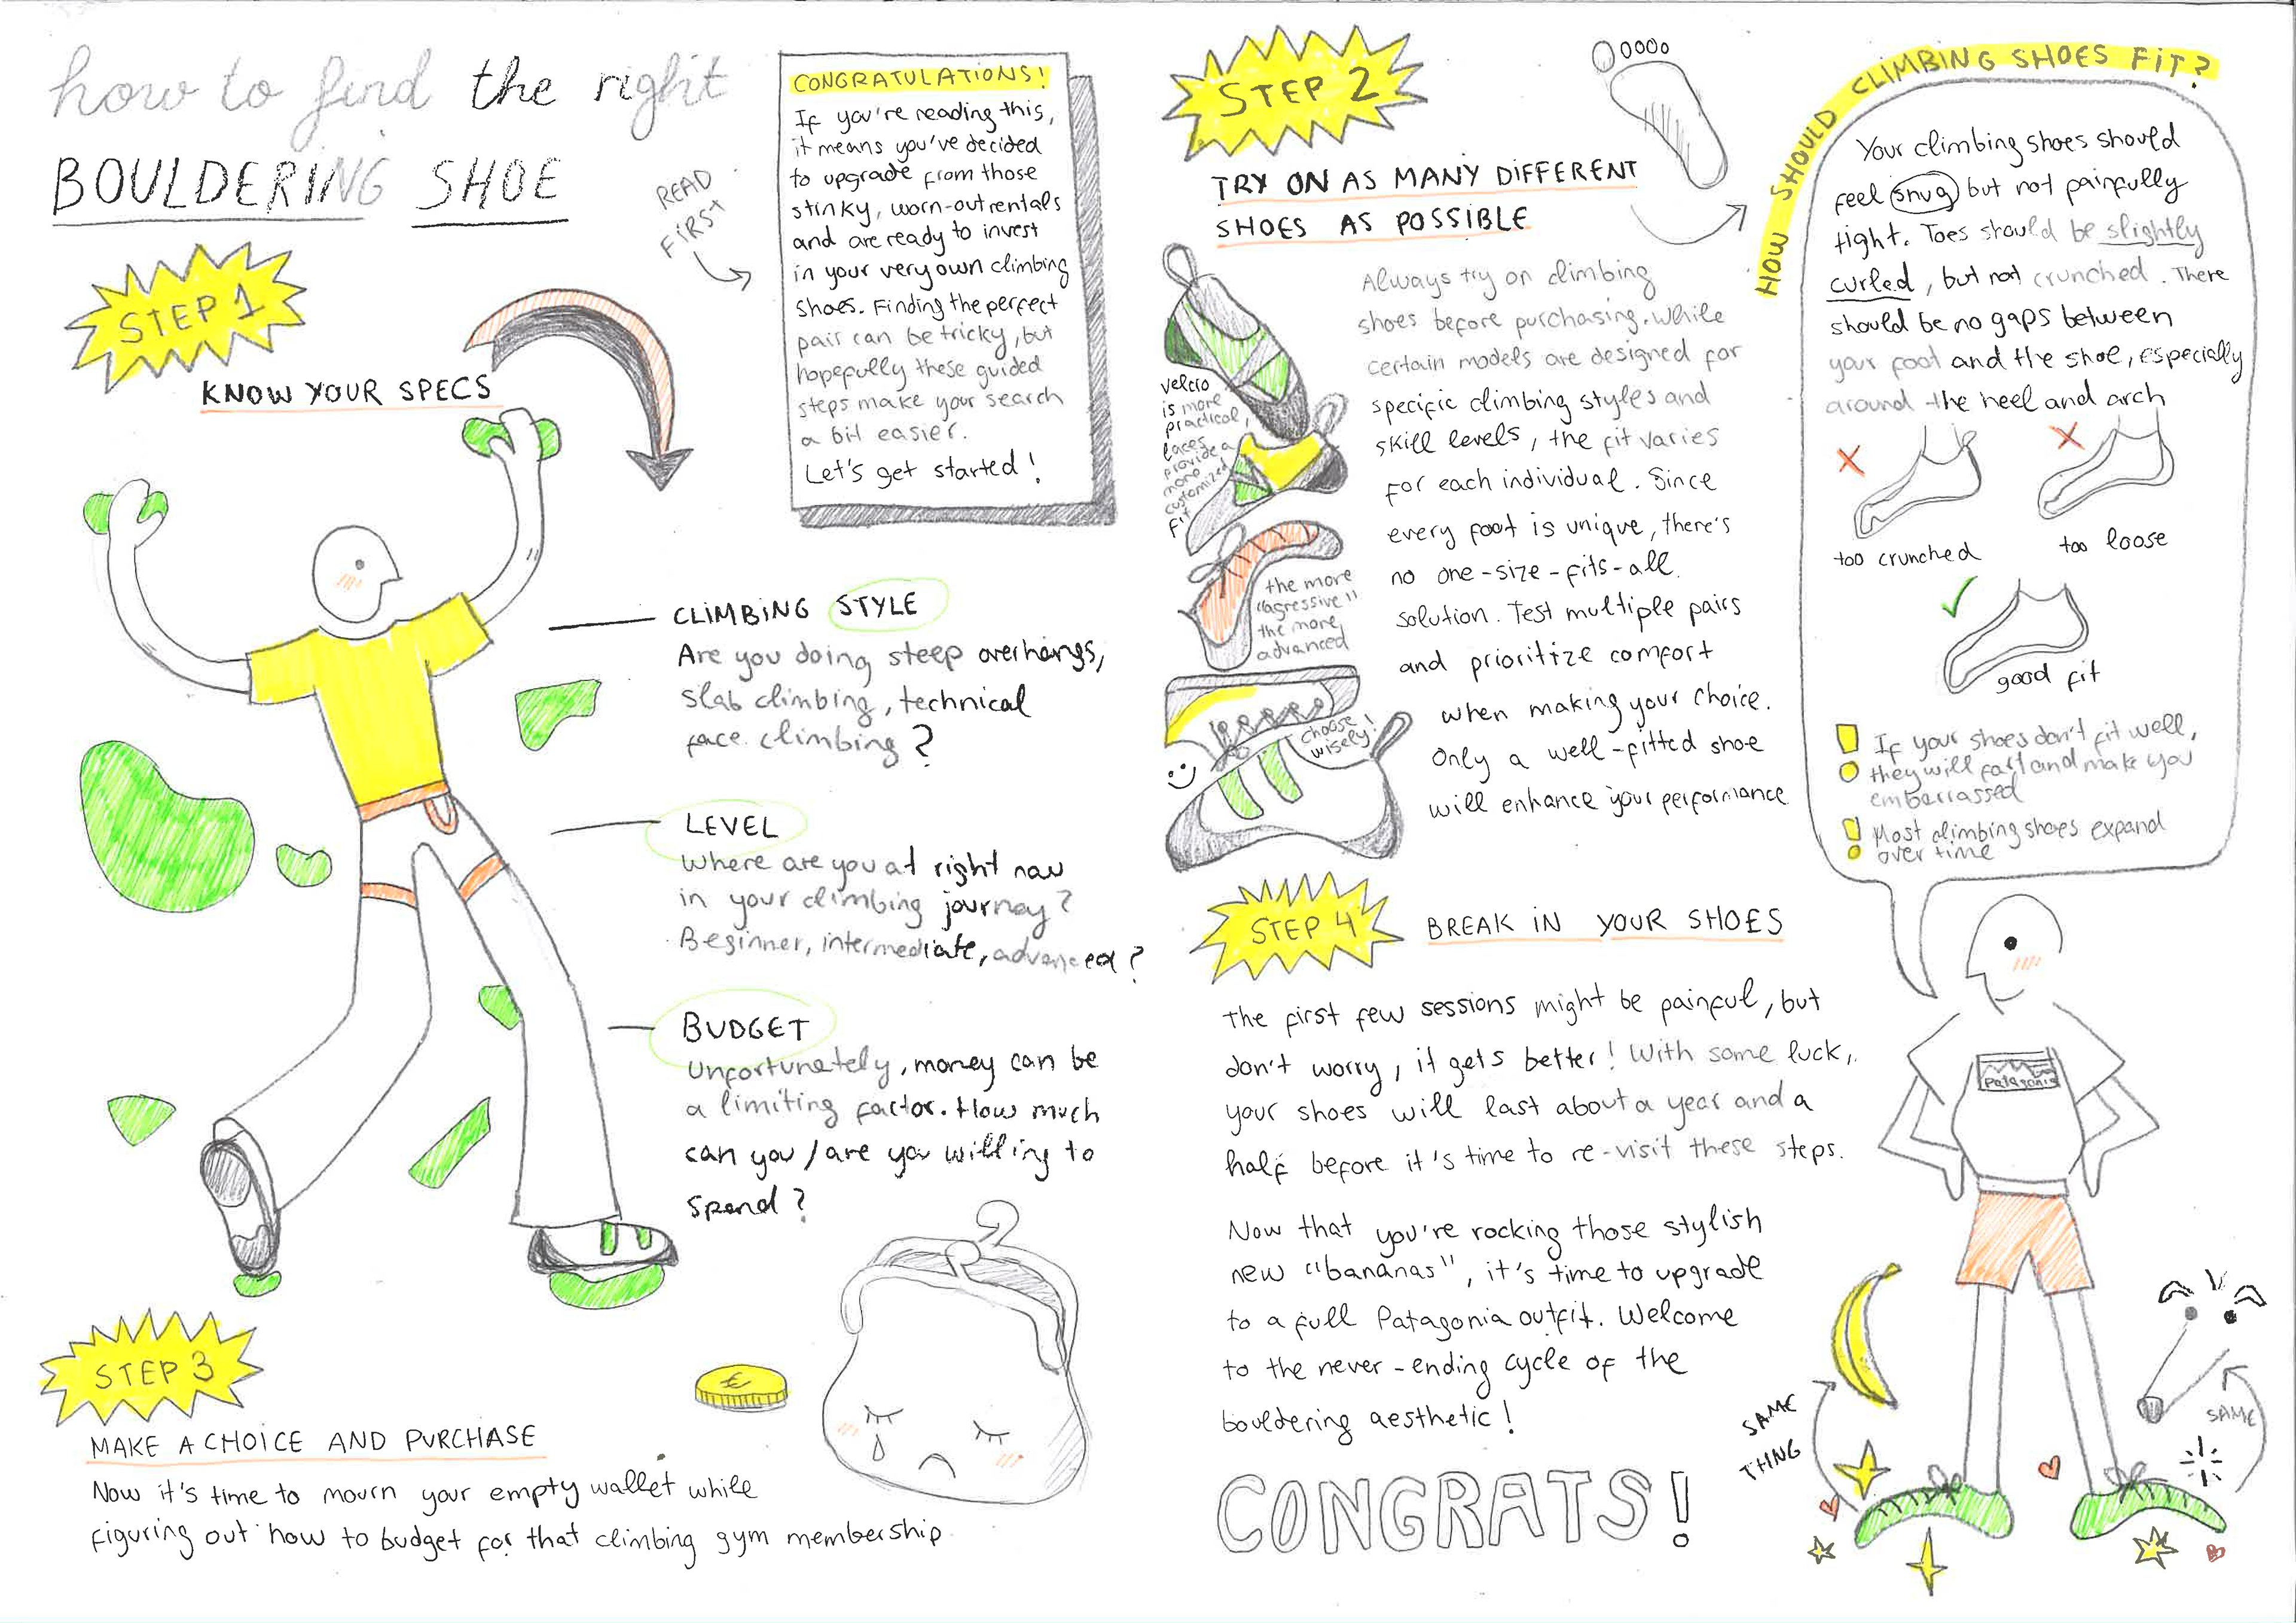 how to find the right
BOULDERING SHOE
READ
FIRST
CONGRATULATIONS!
If you're reading this,
it means you've decided
to upgrade from those
stinky, worn-out rentals
and are ready to invest
in your very own climbing
shoes. Finding the perfect
pair can be tricky, but
hopefully these guided
steps make your search
a bit easier.
Let's get started!
STEP 1
KNOW YOUR SPECS
CLIMBING STYLE
Are you doing steep overhangs,
slab climbing, technical
face climbing?
LEVEL
Where are you at right now
in your climbing journey?
Beginner, intermediate, advanced?
BUDGET
Unfortunately, money can be
a limiting factor. How much
can you/are you willing to
spend?
STEP 3
MAKE A CHOICE AND PURCHASE
Now it's time to mourn your empty wallet while
figuring out how to budget for that climbing gym membership
€
STEP 2
TRY ON AS MANY DIFFERENT
SHOES AS POSSIBLE
Always try on climbing
shoes before purchasing. While
certain models are designed for
specific climbing styles and
skill levels, the fit varies
for each individual. Since
every foot is unique, there's
no one-size-fits-all
solution. Test multiple pairs
and prioritize comfort
when making your choice.
Only a well-fitted shoe
will enhance your performance
velcro
is more
practical,
laces
provide a
more
customized
fit
the more
"agressive"
the more
advanced
choose
wisely!
HOW SHOULD CLIMBING SHOES FIT?
Your climbing shoes should
feel snug but not painfully
tight. Toes should be slightly
curled, but not crunched. There
should be no gaps between
your foot and the shoe, especially
around the heel and arch
too crunched
too loose
good fit
! If your shoes don't fit well,
they will fart and make you
embarrassed
! Most climbing shoes expand
over time
STEP 4
BREAK IN YOUR SHOES
The first few sessions might be painful, but
don't worry, it gets better! With some luck,
your shoes will last about a year and a
half before it's time to re-visit these steps.
Now that you're rocking those stylish
new "bananas", it's time to upgrade
to a full Patagonia outfit. Welcome
to the never-ending cycle of the
bouldering aesthetic!
CONGRATS!
patagonia
SAME
THING
SAME